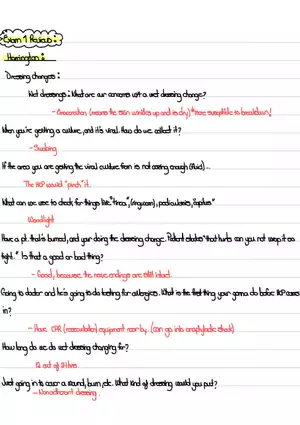 Exam 1 Review :
Harrington :
Dressing changes :
Wet dressings : What are our concerns w/ a wet dressing change?
- Maceration (means the skin wrinkles up and is dry) *more susceptible to breakdown!
When you're getting a culture, and it's viral. How do we collect it?
- Swabbing
If the area you are getting the viral culture from is not oozing enough (fluid)...
The HCP would "pinch" it.
What can we use to check for things like "tinea", (ringworm), pediculosis,
Woodlight
Have a pt. that's burned, and your doing the dressing change. Patient states "that hurts can you not keep it on
tight." Is that a good or bad thing?
- Good, because the nerve endings are still intact.
Going to doctor and he's going to do testing for allergies. What is the first thing your gonna do before HCP comes
in?
- Have CPR (resuscitation) equipment near by. (can go into anaphylactic shock)
How long do we do wet dressing changing for?
12 out of 24hrs.
Just going in to cover a wound, burn, etc. What kind of dressing would you put?
- Nonadherent dressing.